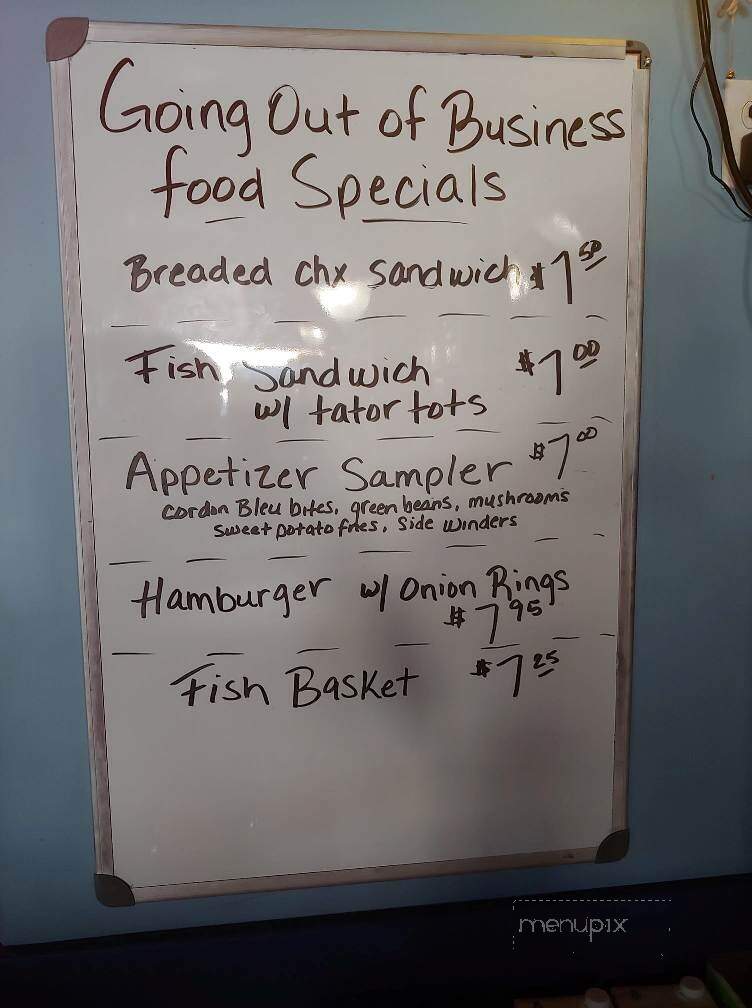 Going Out of Business
food Specials
Breaded chx Sandwich $7.50
Fish Sandwich $7.00
w/ tator tots
Appetizer Sampler $7.00
Cordon Bleu bites, green beans, mushrooms
sweet potato fries, Side Winders
Hamburger w/ Onion Rings
$7.95
Fish Basket $7.25
menupix